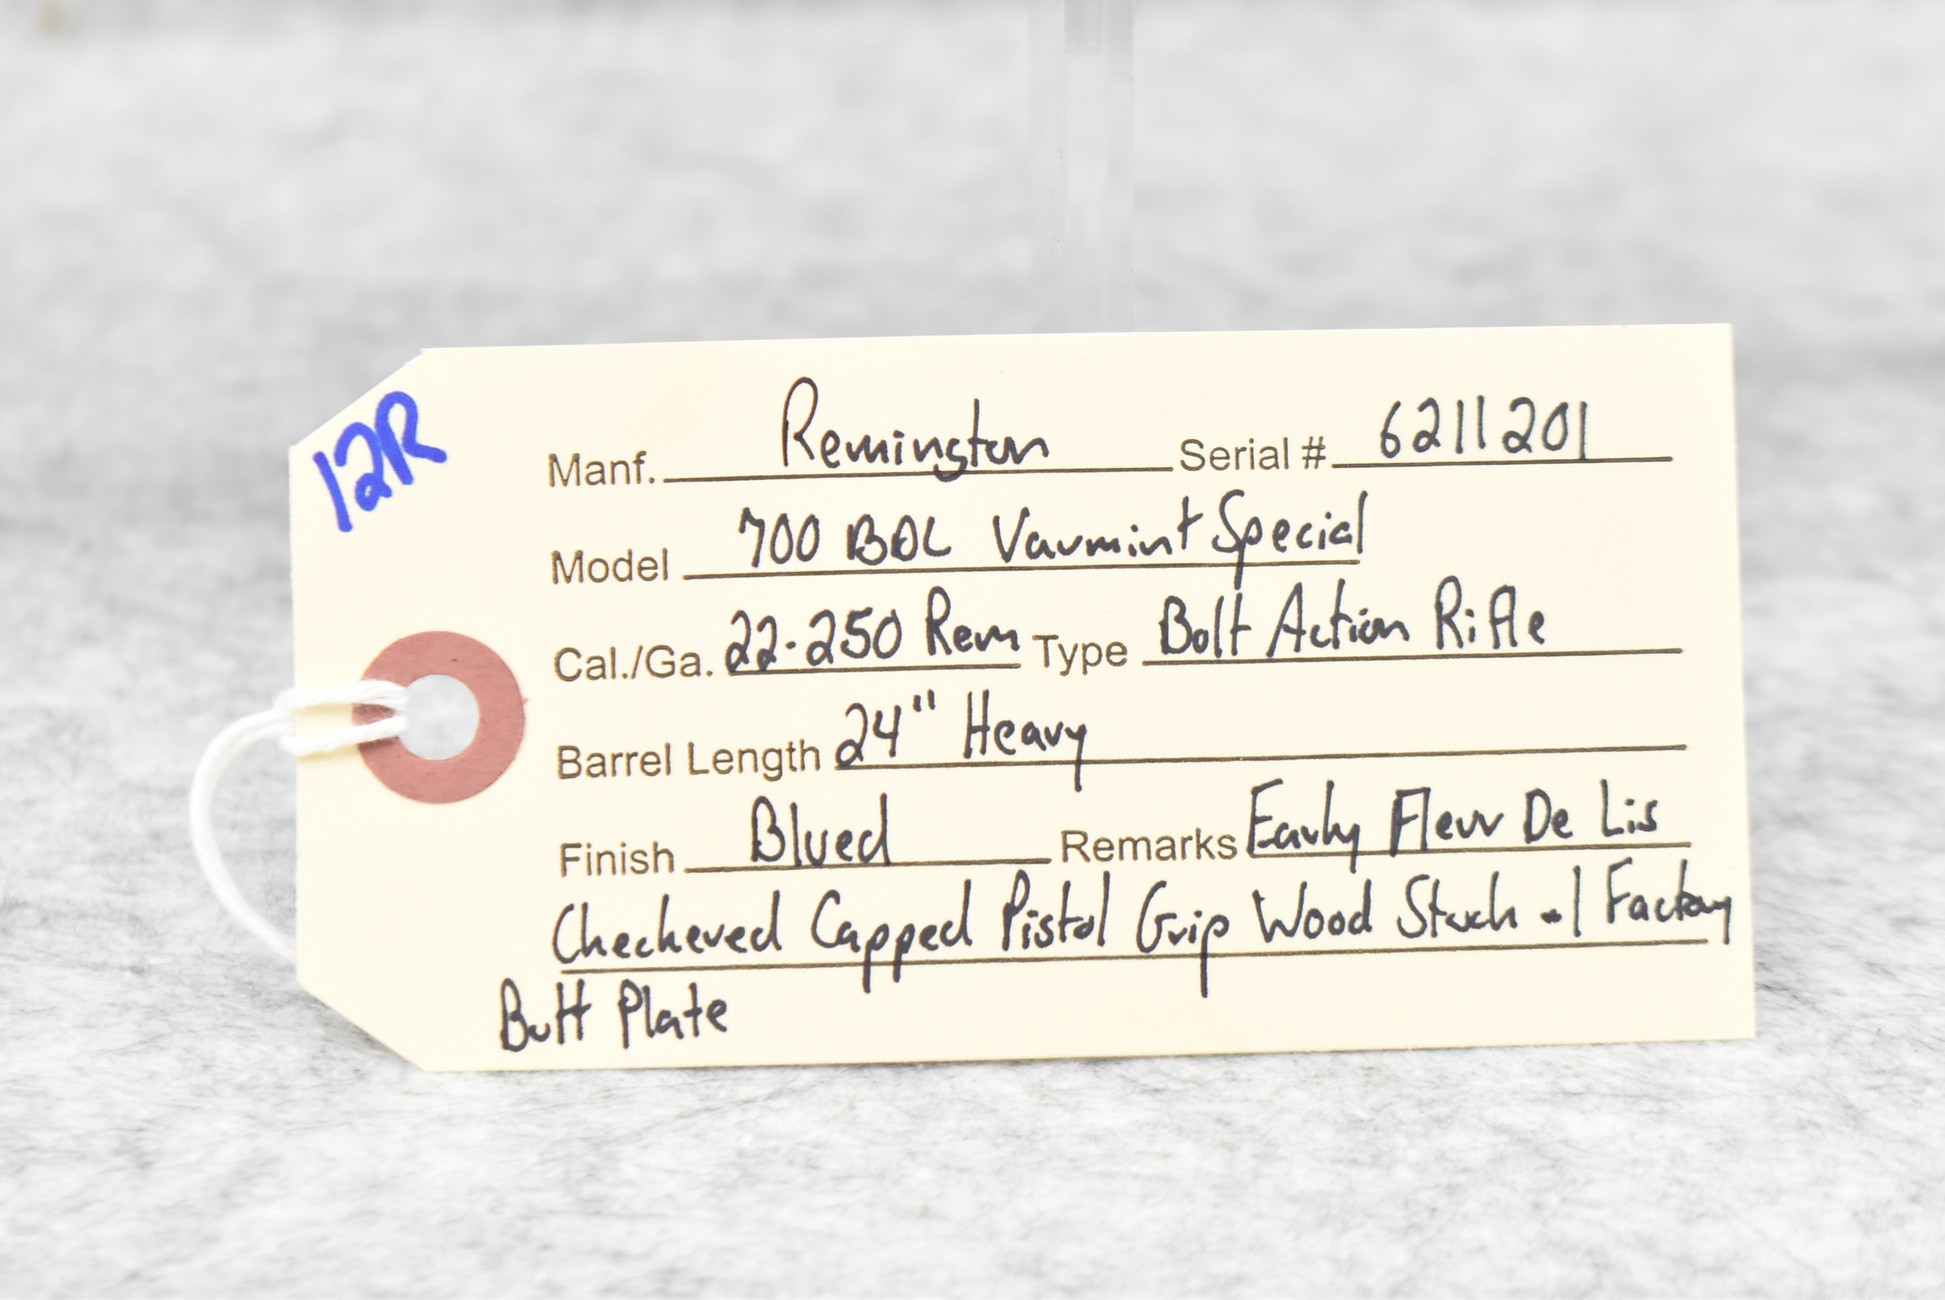 12R
Manf. Remington Serial # 6211201
Model 700 BDL Varmint Special
Cal./Ga. 22-250 Rem Type Bolt Action Rifle
Barrel Length 24" Heavy
Finish Blued Remarks Early Fleur De Lis
Checkered Capped Pistol Grip Wood Stock w/ Factory
Butt Plate